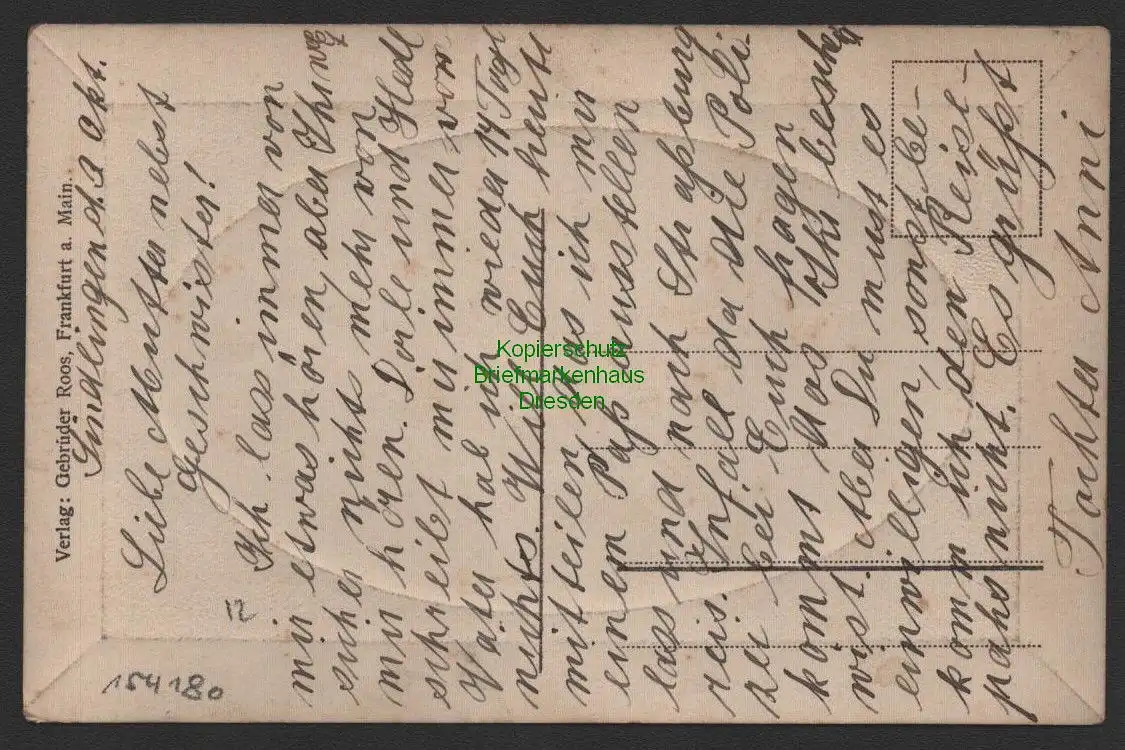 Verlag: Gebrüder Roos, Frankfurt a. Main.
Sindlingen d. 2 Okt.
Liebe Mutter nebst
Geschwister!
Ich lass immer von
mir etwas hören aber Ihr
sicher nichts mehr von
mir hören. Lorle und Hedl
schreibt mir immer vor
Vater hab ich wieder 14 Tage
nichts. Will Euch heut
mitteilen das ich mir
einen Paß ausstellen
lass und nach Straßburg
reis. Infall da die Poli-
zei bei Euch fragen
kommt das Ihr bescheid
wist. Aber Du must es
einwilligen sonst be-
komm ich den Reise-
pahs nicht. Es grüßt
Tochter Anni
12
154180
Kopierschutz
Briefmarkenhaus
Dresden